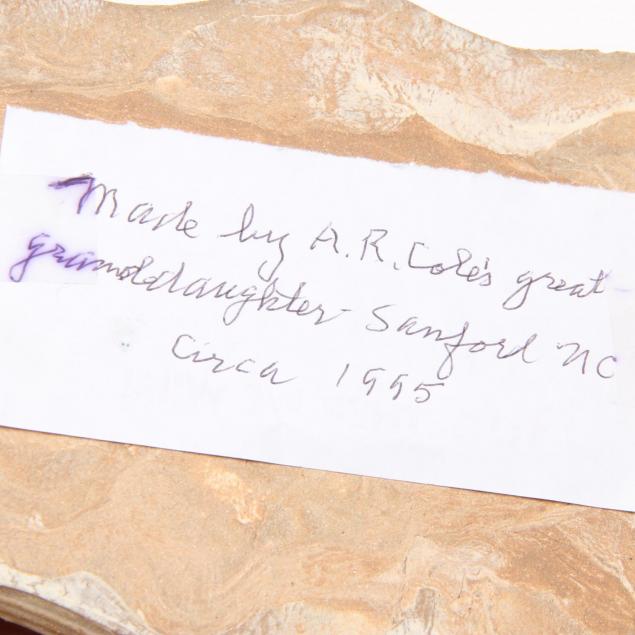 Made by A.R. Cole's great-
granddaughter - Sanford NC
circa 1995